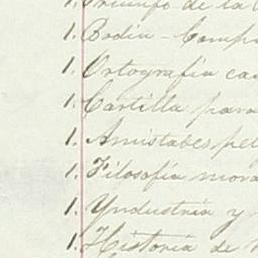 1. Triunfo de la
1. Bodin - Camp
1. Ortografía ca
1. Cartilla para
1. Amistades pel
1. Filosofía mora
1. Yndustria y
1. Historia de